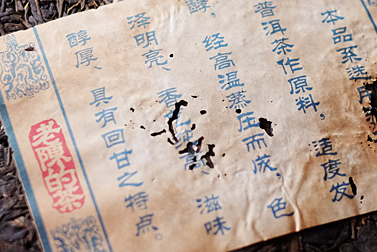 本品系选
普洱茶作原料。适度发
酵，经高温蒸压而成 色
泽明亮、香 滋味
醇厚、具有回甘之特点。
老陳的茶